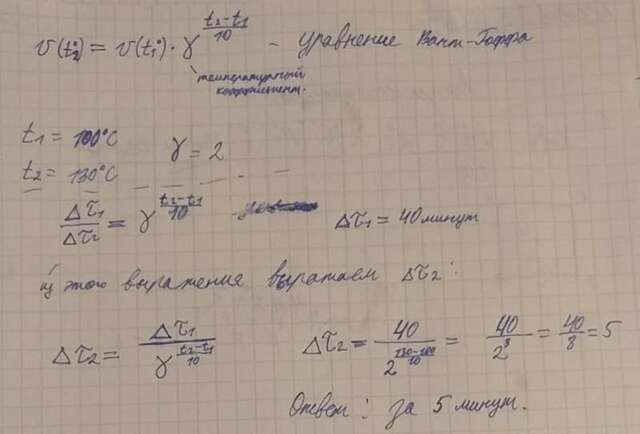 υ(t₂°) = υ(t₁°) · γ^((t₂-t₁)/10) - уравнение Вант-Гоффа
температурный
коэффициент.
t₁ = 100°C
γ = 2
t₂ = 130°C
Δτ₁/Δτ₂ = γ^((t₂-t₁)/10) Δτ₁ = 40 минут
из этого выражения выражаем Δτ₂:
Δτ₂ = Δτ₁/γ^((t₂-t₁)/10) Δτ₂ = 40/2^((130-100)/10) = 40/2³ = 40/8 = 5
Ответ: за 5 минут.